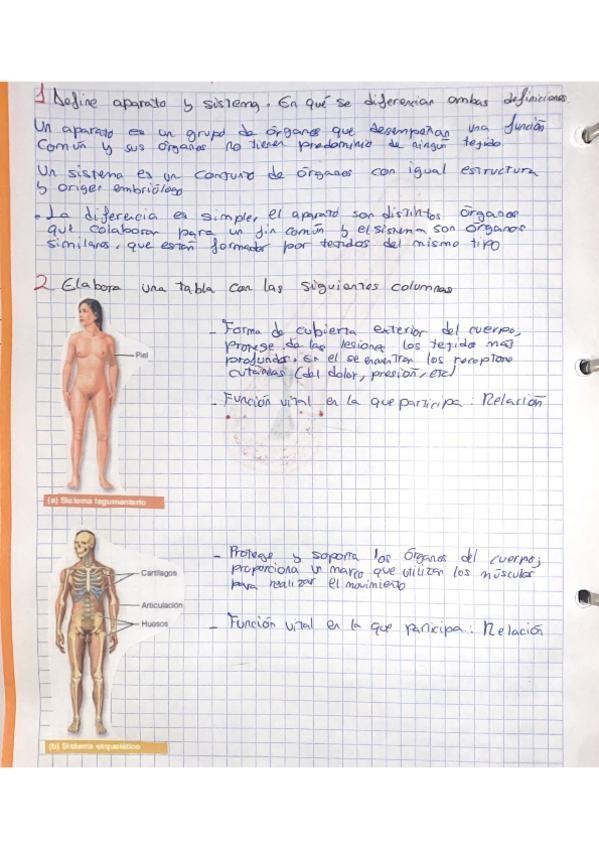 1 Define aparato y sistema. En qué se diferencian ambas definiciones
Un aparato es un grupo de órganos que desempeñan una función
Común y sus órganos no tienen predominio de ningún tejido.
Un sistema es un conjunto de órganos con igual estructura
y origen embriólogo
. La diferencia es simple, el aparato son distintos órganos
que colaboran para un fin común y el sistema son órganos
similares, que están formador por tejidos del mismo tipo
2 Elabora una tabla con las siguientes columnas
- Forma de cubierta exterior del cuerpo,
protege de las lesiones los tejidos más
profundos. En el se encuentran los receptore
cutáneas (del dolor, presión, etc)
Piel
- Función vital en la que participa: Relación
(a) Sistema tegumentario
- Protege y soporta los órganos del cuerpo;
proporciona un marco que utilizan los músculos
para realizar el movimiento
Cartílagos
Articulación
Huesos
- Función vital en la que participa: Relación
(b) Sistema esquelético